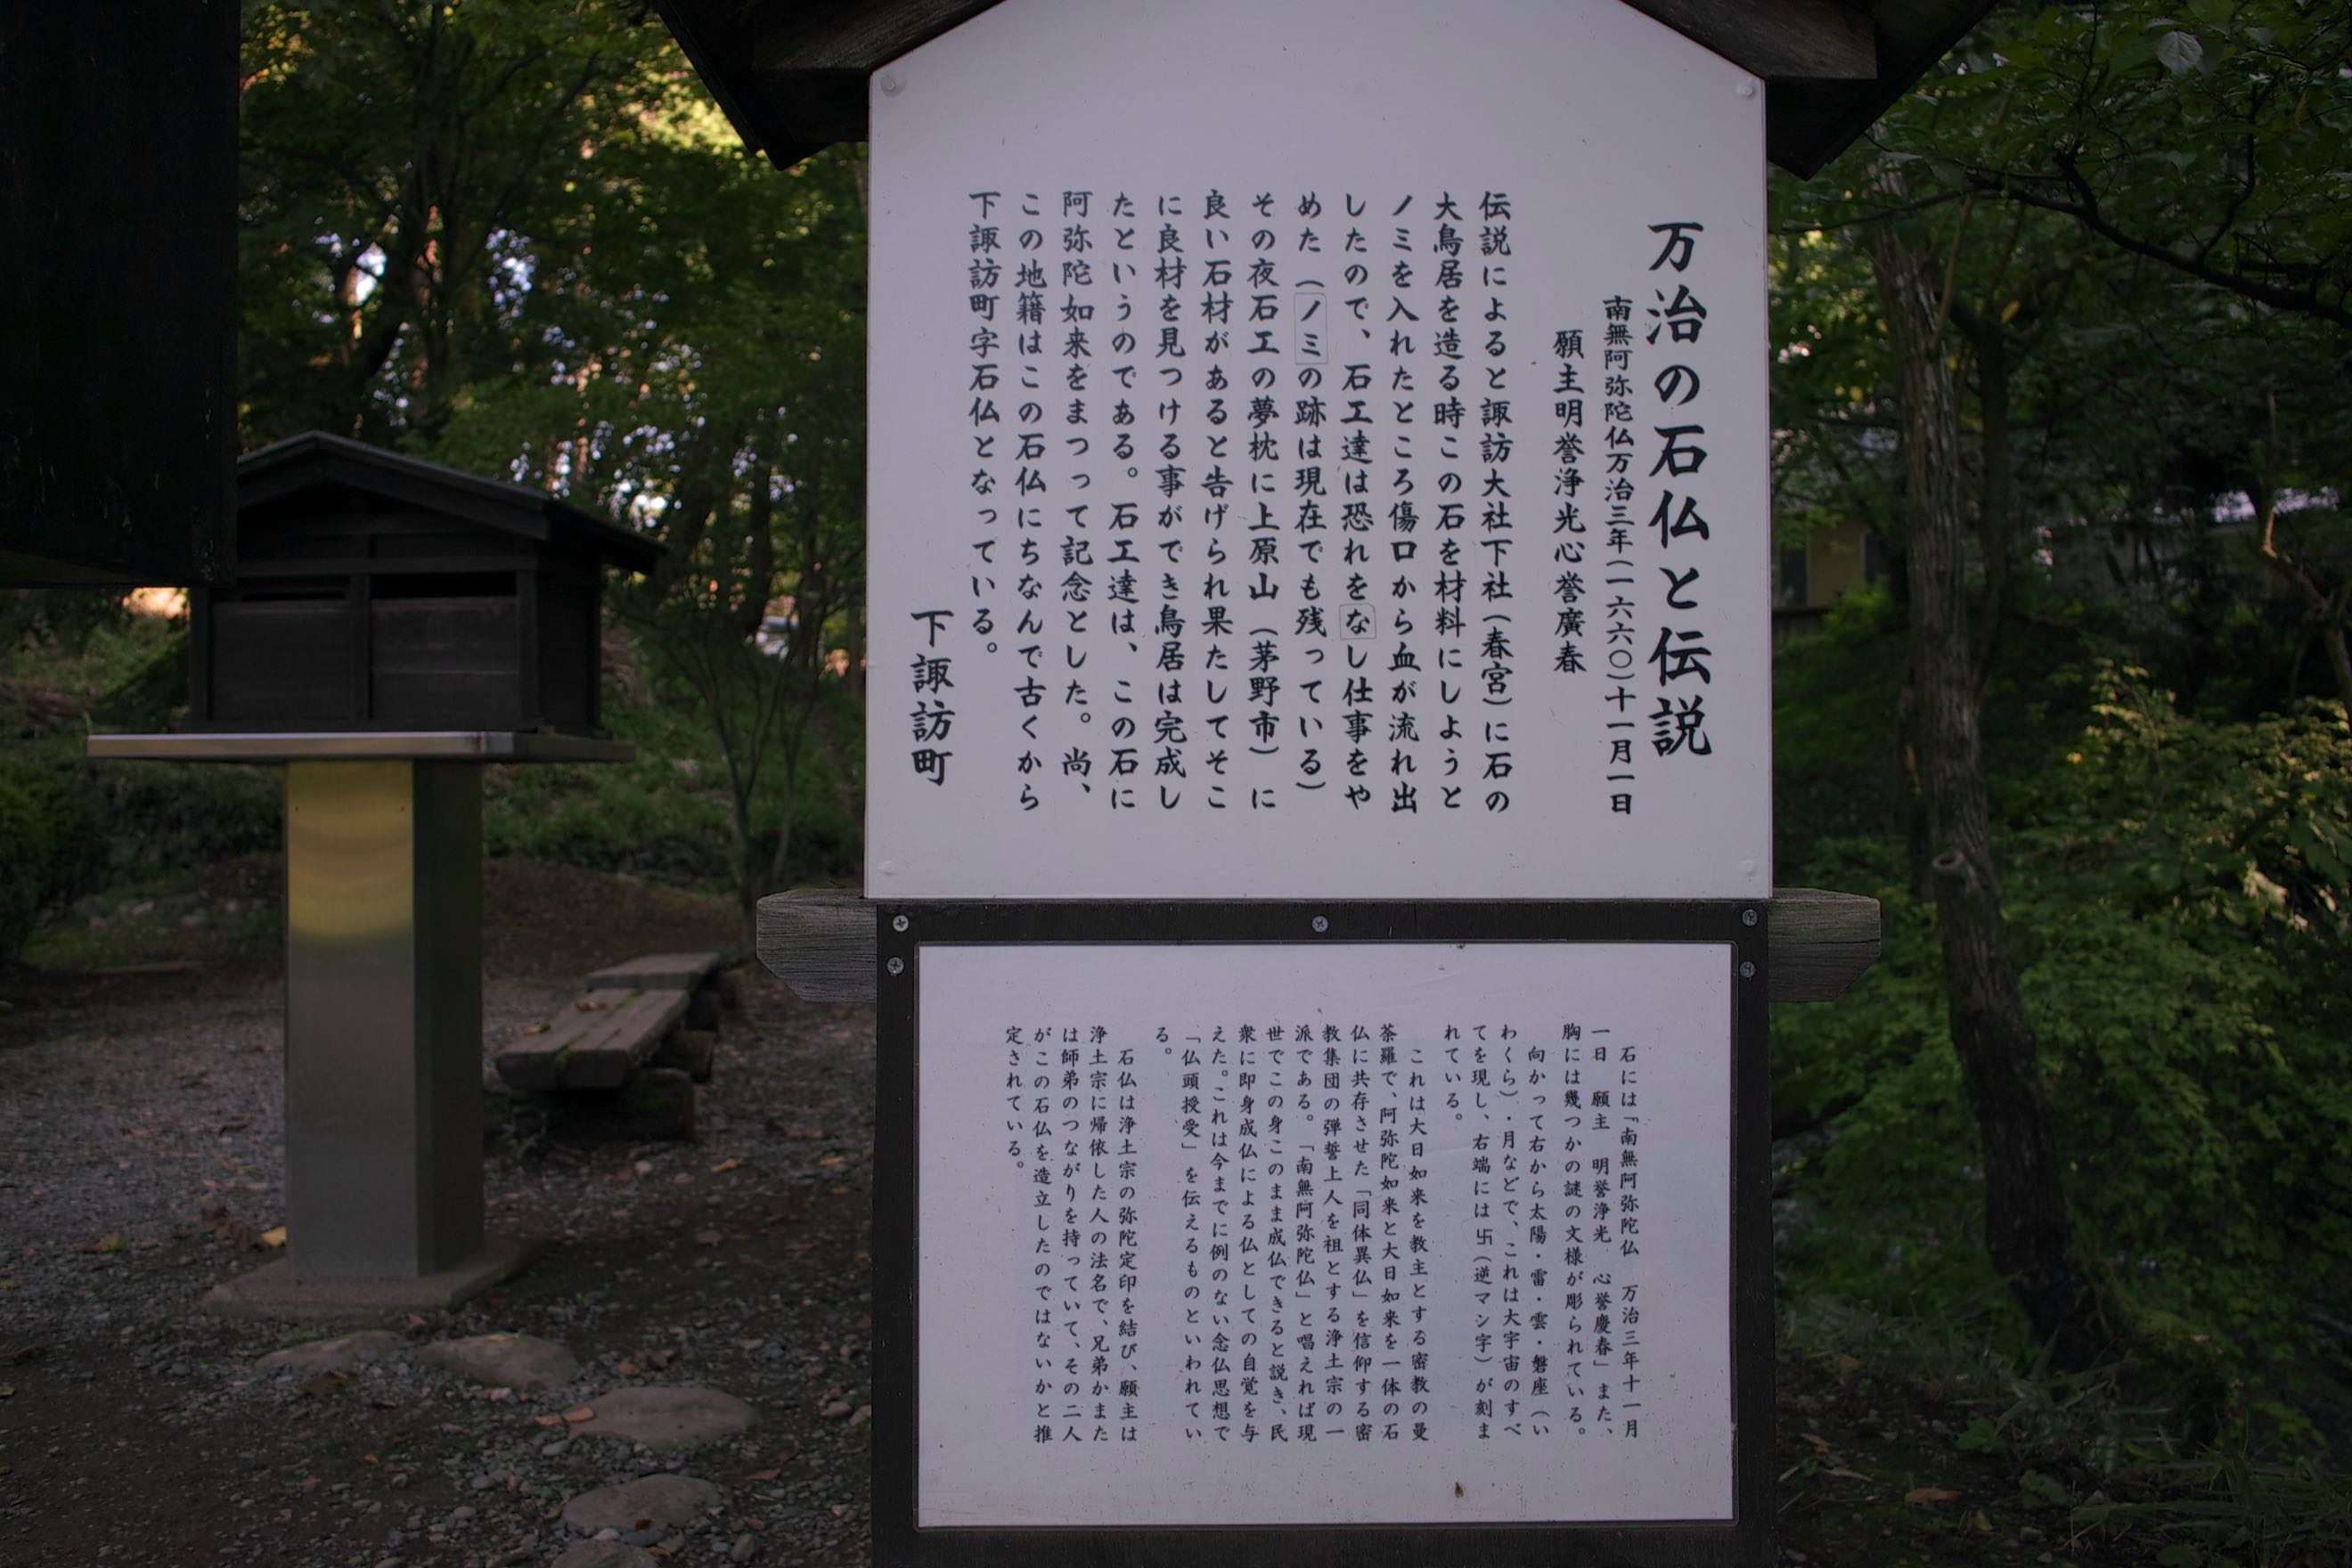 万治の石仏と伝説
南無阿弥陀仏万治三年(一六六〇)十一月一日
願主明誉浄光心誉廣春
伝説によると諏訪大社下社(春宮)に石の
大鳥居を造る時この石を材料にしようと
ノミを入れたところ傷口から血が流れ出
したので、石工達は恐れをなし仕事をや
めた(ノミの跡は現在でも残っている)
その夜石工の夢枕に上原山(茅野市)に
良い石材があると告げられ果たしてそこ
に良材を見つける事ができ鳥居は完成し
たというのである。石工達は、この石に
阿弥陀如来をまつって記念とした。尚、
この地籍はこの石仏にちなんで古くから
下諏訪町字石仏となっている。
下諏訪町
石には「南無阿弥陀仏 万治三年十一月
一日 願主 明誉浄光 心誉慶春」また、
胸には幾つかの謎の文様が彫られている。
向かって右から太陽・雷・雲・磐座(い
わくら)・月などで、これは大宇宙のすべ
てを現し、右端には卐(逆マンジ字)が刻ま
れている。
これは大日如来を教主とする密教の曼
荼羅で、阿弥陀如来と大日如来を一体の石
仏に共存させた「同体異仏」を信仰する密
教集団の弾誓上人を祖とする浄土宗の一
派である。「南無阿弥陀仏」と唱えれば現
世でこの身このまま成仏できると説き、民
衆に即身成仏による仏としての自覚を与
えた。これは今までに例のない念仏思想で
「仏頭授受」を伝えるものといわれてい
る。
石仏は浄土宗の弥陀定印を結び、願主は
浄土宗に帰依した人の法名で、兄弟かまた
は師弟のつながりを持っていて、その二人
がこの石仏を造立したのではないかと推
定されている。